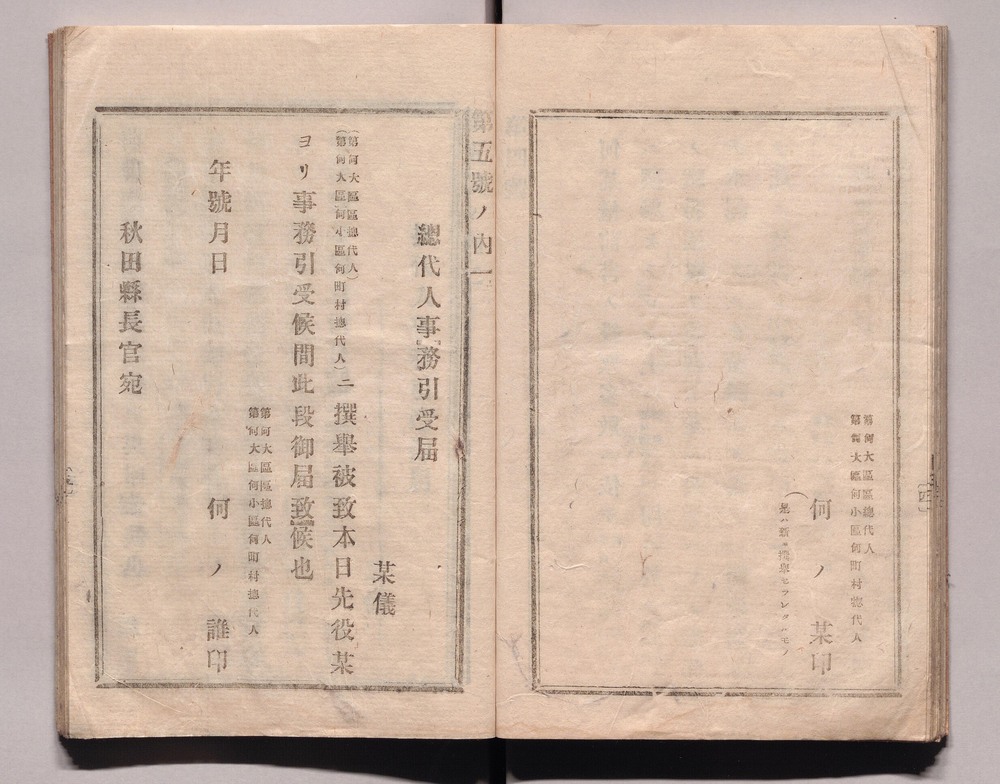 第何大區區總代人
第何大區何小區何町村總代人
何ノ某印
(是ハ新ニ撰擧セラレタルモノ
第五號ノ內一
總代人事務引受届
某儀
(第何大區區總代人)
(第何大區何小區何町村總代人)ニ撰擧被致本日先役某
ヨリ事務引受候間此段御届致候也
第何大區區總代人
第何大區何小區何町村總代人
年號月日
何ノ誰印
秋田縣長官宛